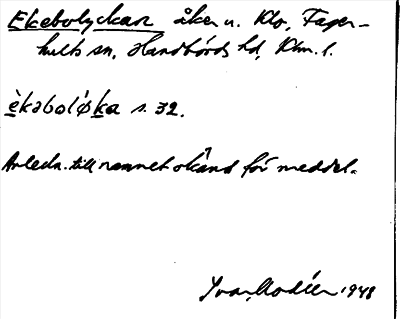 Ekebolyckan åker u. Klo, Fager-
hults sn, Handbörds hd, Klm. l.
èkəbolø̀ka s. 32.
Anledn. till namnet okänd för meddel.
Ivar Modéer 1948